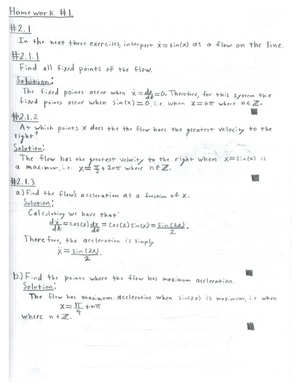 Homework #1.
#2.1
In the next three exercises, interpret ẋ=sin(x) as a flow on the line.
#2.1.1
Find all fixed points of the flow.
Solution:
The fixed points occur when ẋ = dx/dt = 0. Therefore, for this system the
fixed points occur when sin(x) = 0, i.e. when x=nπ where n∈ℤ.
#2.1.2
At which points x does the the flow have the greatest velocity to the
right?
Solution:
The flow has the greatest velocity to the right when ẋ=sin(x) is
a maximum, i.e. x= π/2 + 2nπ where n∈ℤ.
#2.1.3
a.) Find the flow's acceleration as a function of x.
Solution:
Calculating we have that:
dẋ/dt = cos(x) dx/dt = cos(x) sin(x) = sin(2x)/2.
Therefore, the acceleration is simply
ẍ = sin(2x)/2.
b.) Find the points where the flow has maximum acceleration.
Solution:
The flow has maximum acceleration when sin(2x) is maximum, i.e when
x = π/4 + nπ
where n∈ℤ.